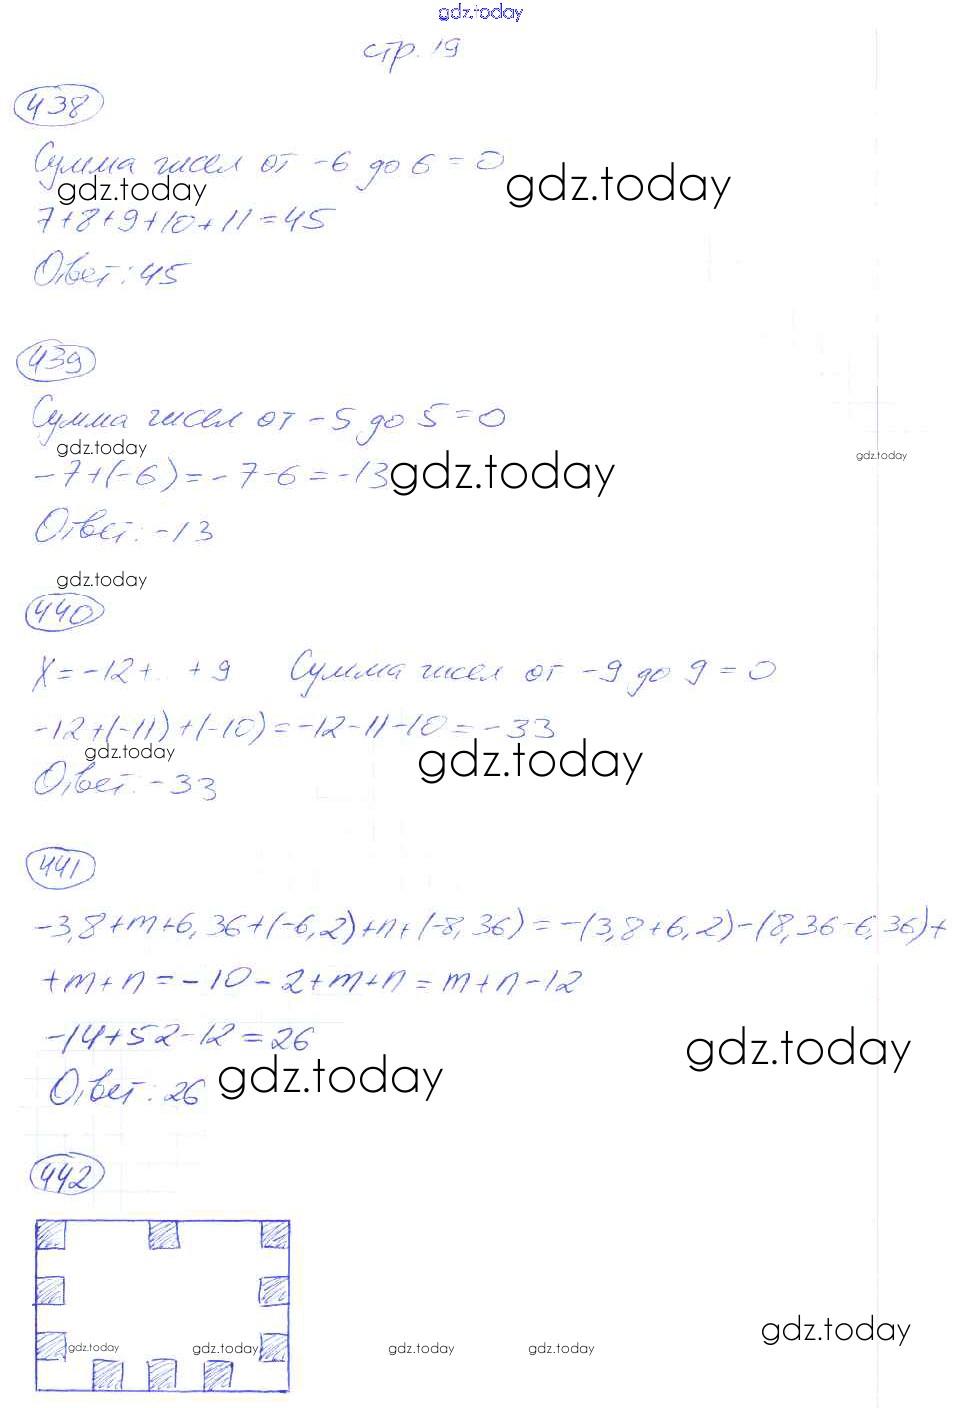 gdz.today
стр. 19
438
Сумма чисел от -6 до 6 = 0
gdz.today gdz.today
7+8+9+10+11=45
Ответ: 45
439
Сумма чисел от -5 до 5 = 0
gdz.today gdz.today
-7+(-6) = -7-6 = -13 gdz.today
Ответ: -13
gdz.today
440
X = -12+...+9 Сумма чисел от -9 до 9 = 0
-12+(-11)+(-10) = -12-11-10 = -33
gdz.today gdz.today
Ответ: -33
441
-3,8+m+6,36+(-6,2)+n+(-8,36) = -(3,8+6,2)-(8,36-6,36)+
+m+n = -10-2+m+n = m+n-12
-14+52-12 = 26
gdz.today gdz.today
Ответ: 26
442
gdz.today
gdz.today gdz.today gdz.today gdz.today